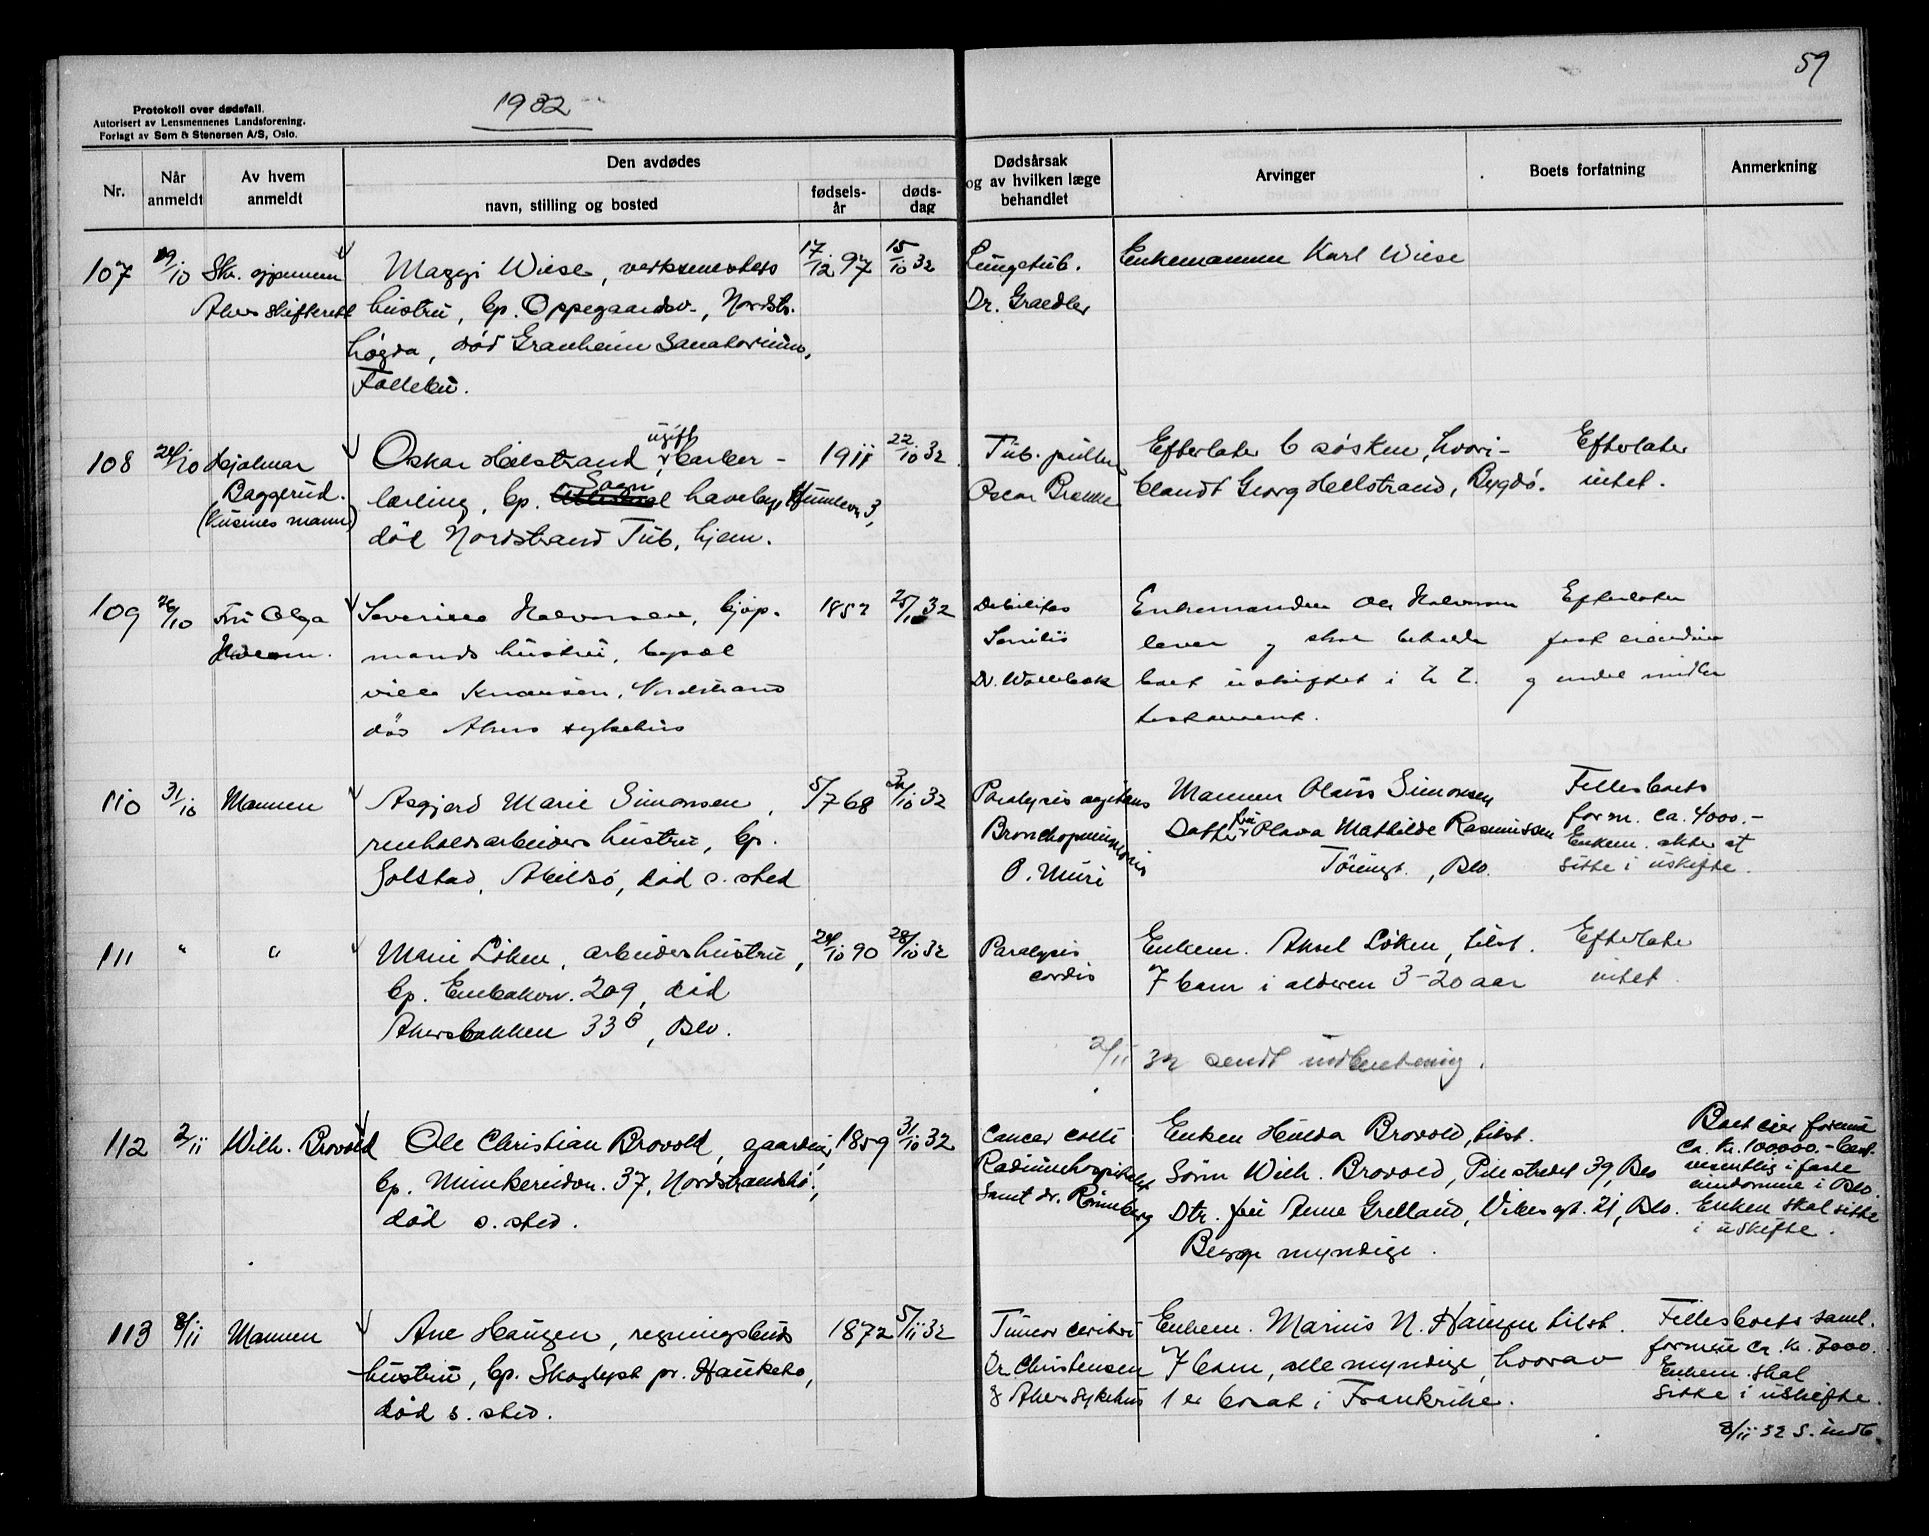 59
Protokoll over dødsfall.
Autorisert av Lensmennenes Landsforening.
Forlagt av Sem & Stenersen A/S, Oslo.
1932
Nr.
Når anmeldt
Av hvem anmeldt
Den avdødes
navn, stilling og bosted
fødsels-år
døds-dag
Dødsårsak og av hvilken læge behandlet
Arvinger
Boets forfatning
Anmerkning
107 19/10 Skr. gjennem Maggi Wiese, verksmesters 17/12 97 15/10 32 Lungetub. Enkemannen Karl Wiese
Akers skifterett hustru, bp. Oppegaardsv., Nordstr. Dr. Graedler
høgda, død Granheim Sanatorium,
Follebu.
108 24/10 Hjalmar Oskar Helstrand, ugift barber- 1911 22/10 32 Tub. pulm. Efterlater 6 søsken, hvori- Efterlater
Baggerud. lærling, bp. Sogn haveby, 3, Oscar blandt Georg Hellstrand, Bygdø. intet.
(kusines mann) død Nordstrand Tub. hjem.
109 26/10 Fru Olga Severine Halvorsen, kjøp- 1857 25/10 32 Debilitas Enkemanden Ole Halvorsen Efterlater
mands hustru, bopæl Senilis lever og skal beholde fast eiendom
villa Knausen, Nordstrand Dr. boet uskiftet i h. t. og endel midler
død Akers sykehus testament.
110 31/10 Mannen Asgjerd Marie Simonsen, 5/7 68 30/10 32 Paralysis agitans Mannen Olaus Simonsen Fellesboets
renholdsarbeiders hustru, bp. Bronchopneumonia Datter fru Olava Mathilde Rasmussen form. ca. 4000.-
Solstad, Abildsø, død s. sted O. Muri , Oslo. Enkem. akter at
sitte i uskifte.
111 " " Marie Løken, arbeiders hustru, 24/10 90 28/10 32 Paralysis Enkem. Aksel Løken, tilst. Efterlater
bp. Enebakkv. 209, død cordis 7 barn i alderen 3-20 aar intet.
Akersbakken 33B, Oslo.
2/11 32 sendt indberetning.
112 2/11 Wilh. Brovold Ole Christian Brovold, gaardeier, 1859 31/10 32 Cancer coli Enken Hulda Brovold, tilst. Boet eier formue
bp. Munkerudvn. 37, Nordstrandshø., Radiumhospitalet Sønn Wilh. Brovold, Pilestredet 39, Oslo ca. kr. 100,000.- best.
død s. sted. samt dr. Rønneberg Dtr. fru Anne Grelland, Vibesgt. 21, Oslo. vesentlig i faste
Begge myndige. eiendomme i Oslo.
Enken skal sitte
i uskifte.
113 8/11 Mannen Ane Haugen, regningsbuds 1872 5/11 32 Tumor cerebri Enkem. Marius N. Haugen tilst. Fellesboets saml.
hustru, bp. Skoglyst pr. Hauketo, Dr. Christensen 7 barn, alle myndige, hvorav formue ca. kr. 7000.
død s. sted. & Aker sykehus 1 er bosat i Frankrike. Enkem. skal
sitte i uskifte.
8/11 32 S. indb.